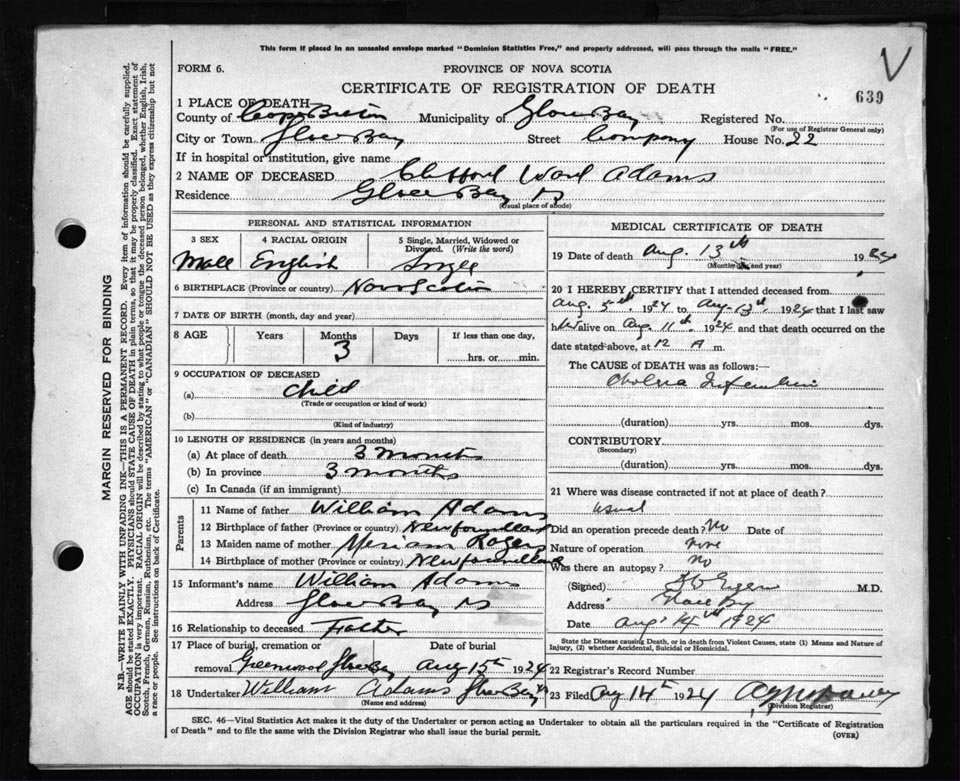 This form if placed in an unsealed envelope marked "Dominion Statistics Free," and properly addressed, will pass through the mails "FREE."
V
FORM 6.
PROVINCE OF NOVA SCOTIA
CERTIFICATE OF REGISTRATION OF DEATH
639
1 PLACE OF DEATH
County of Cape Breton Municipality of Glace Bay Registered No.
(For use of Registrar General only)
City or Town Glace Bay Street Company House No. 22
If in hospital or institution, give name
2 NAME OF DECEASED Clifford Adams
Residence Glace Bay NS
(Usual place of abode)
PERSONAL AND STATISTICAL INFORMATION
3 SEX 4 RACIAL ORIGIN 5 Single, Married, Widowed or Divorced. (Write the word)
Male English Single
6 BIRTHPLACE (Province or country) Nova Scotia
7 DATE OF BIRTH (month, day and year)
8 AGE Years Months Days If less than one day,
3
hrs. or min.
9 OCCUPATION OF DECEASED
(a) Child
(Trade or occupation or kind of work)
(b)
(Kind of industry)
10 LENGTH OF RESIDENCE (in years and months)
(a) At place of death 3 months
(b) In province 3 months
(c) In Canada (if an immigrant)
Parents
11 Name of father William Adams
12 Birthplace of father (Province or country) Newfoundland
13 Maiden name of mother Meriam Rogers
14 Birthplace of mother (Province or country) Newfoundland
15 Informant's name William Adams
Address Glace Bay NS
16 Relationship to deceased Father
17 Place of burial, cremation or removal Date of burial
Greenwood Glace Bay Aug 15th 1924
18 Undertaker William Adams Glace Bay
(Name and address)
MEDICAL CERTIFICATE OF DEATH
19 Date of death Aug. 13th 1924
(Month, day and year)
20 I HEREBY CERTIFY that I attended deceased from
Aug. 5th, 1924 to Aug. 13th, 1924 that I last saw
h alive on Aug 11th, 1924 and that death occurred on
date stated above, at 12 A m.
The CAUSE OF DEATH was as follows:—
Cholera Infantum
(duration) yrs. mos. dys.
CONTRIBUTORY
(Secondary)
(duration) yrs. mos. dys.
21 Where was disease contracted if not at place of death?
Did an operation precede death? No Date of
Nature of operation None
Was there an autopsy? No
(Signed) M.D.
Address Glace Bay
Date Aug 14th 1924
State the Disease causing Death, or in death from Violent Causes, state (1) Means and Nature of Injury, (2) whether Accidental, Suicidal or Homicidal.
22 Registrar's Record Number
23 Filed Aug 14th 1924
(Division Registrar)
SEC. 46—Vital Statistics Act makes it the duty of the Undertaker or person acting as Undertaker to obtain all the particulars required in the "Certificate of Registration
of Death" and to file the same with the Division Registrar who shall issue the burial permit.
(OVER)
MARGIN RESERVED FOR BINDING
N.B.—WRITE PLAINLY WITH UNFADING INK—THIS IS A PERMANENT RECORD. Every item of information should be carefully supplied.
AGE should be stated EXACTLY. PHYSICIANS should STATE CAUSE OF DEATH in plain terms, so that it may be properly classified. Exact statement of
OCCUPATION is very important. RACIAL ORIGIN will be described by stating to what people or tongue the deceased person belonged, whether English, Irish,
Scotch, French, German, Russian, Ruthenian, etc. The terms "AMERICAN" or "CANADIAN" SHOULD NOT BE USED as they express citizenship but not
a race or people. See instructions on back of Certificate.